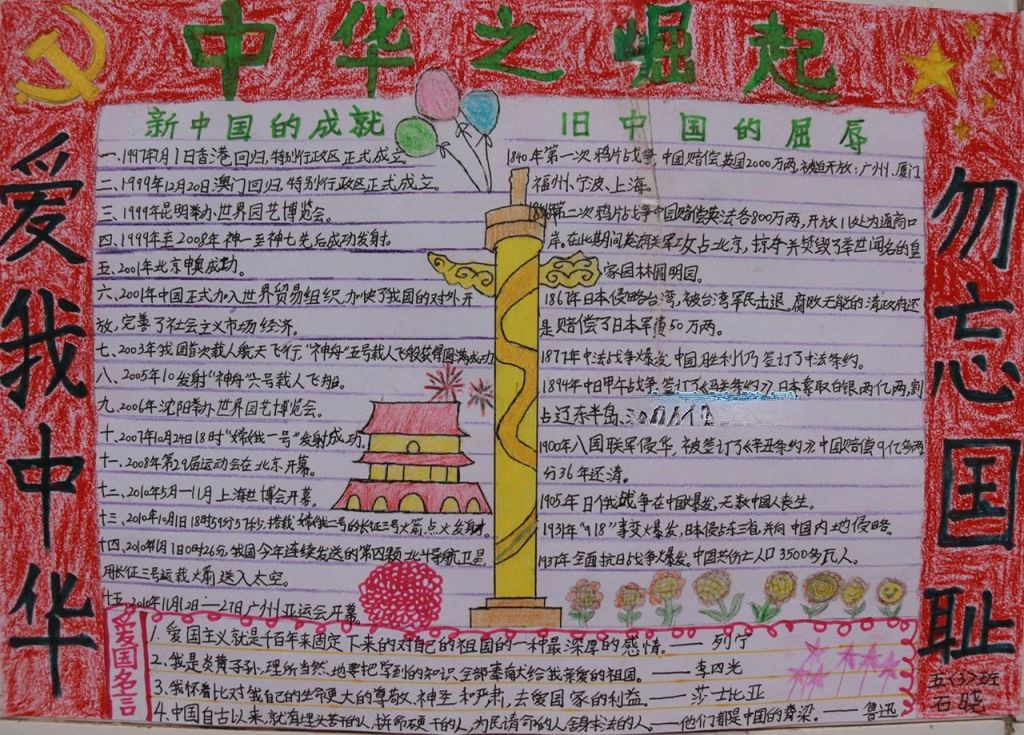 中华之崛起
爱我中华
勿忘国耻
新中国的成就
一、1997年7月1日香港回归,特别行政区正式成立
二、1999年12月20日澳门回归,特别行政区正式成立。
三、1999年昆明举办世界园艺博览会。
四、1999年至2008年神一至神七先后成功发射。
五、2001年北京申奥成功。
六、2001年中国正式加入世界贸易组织,加快了我国的对外开
放,完善了社会主义市场经济。
七、2003年我国首次载人航天飞行"神舟"五号载人飞船获得圆满成功
八、2005年10发射"神舟"六号载人飞船。
九、2006年沈阳举办世界园艺博览会。
十、2007年10月24日18时"嫦娥一号"发射成功。
十一、2008年第29届运动会在北京开幕。
十二、2010年5月—11月上海世博会开幕。
十三、2010年10月1日18时59分57秒,搭载嫦娥二号的长征三号火箭点火发射。
十四、2010年11月1日0时26分我国今年连续发送的第四颗北斗导航卫星
用长征三号运载火箭送入太空。
十五、2010年11月12日—27日广州亚运会开幕
旧中国的屈辱
1840年第一次鸦片战争,中国赔偿英国2000万两,被迫开放:广州、厦门
福州、宁波、上海。
第二次鸦片战争中国赔偿英法各800万两,开放11处为通商口
岸。在此期间英法联军攻占北京,掠夺并焚毁了举世闻名的皇
家园林圆明园。
日本侵略台湾,被台湾军民击退,腐败无能的清政府还
是赔偿了日本军费50万两。
中法战争爆发,中国胜利仍签订了中法条约。
1894年中日甲午战争,签订了《马关条约》,日本索取白银两亿两,割
占辽东半岛、
1900年八国联军侵华,被签订了《辛丑条约》中国赔偿9亿多两
分36年还清。
1905年日俄战争在中国爆发,无数中国人丧生。
1931年"918"事变爆发,日本侵占东三省,并向中国内地侵略。
1937年全面抗日战争爆发。中国共伤亡人口3500多万人。
爱国名言
1.爱国主义就是千百年来固定下来的对自己的祖国的一种最深厚的感情。——列宁
2.我是炎黄子孙,理所当然地要把学到的知识全部奉献给我亲爱的祖国。——李四光
3.我怀着比对我自己的生命更大的尊敬、神圣和严肃,去爱国家的利益。——莎士比亚
4.中国自古以来,就有埋头苦干的人,拼命硬干的人,为民请命的人舍身求法的人——他们都是中国的脊梁。——鲁迅
五(3)班
石晓